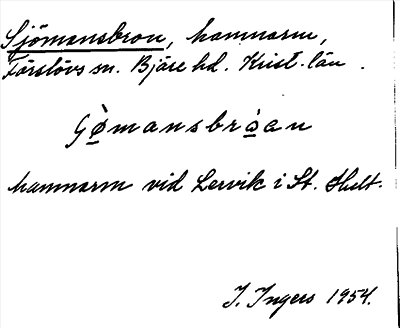 Sjömansbron, hamnarm,
Förslövs sn. Bjäre hd. Krist. län.
Gø̀mansbrǫ̀an
hamnarm vid Lervik i St. Hult.
I. Ingers 1954.